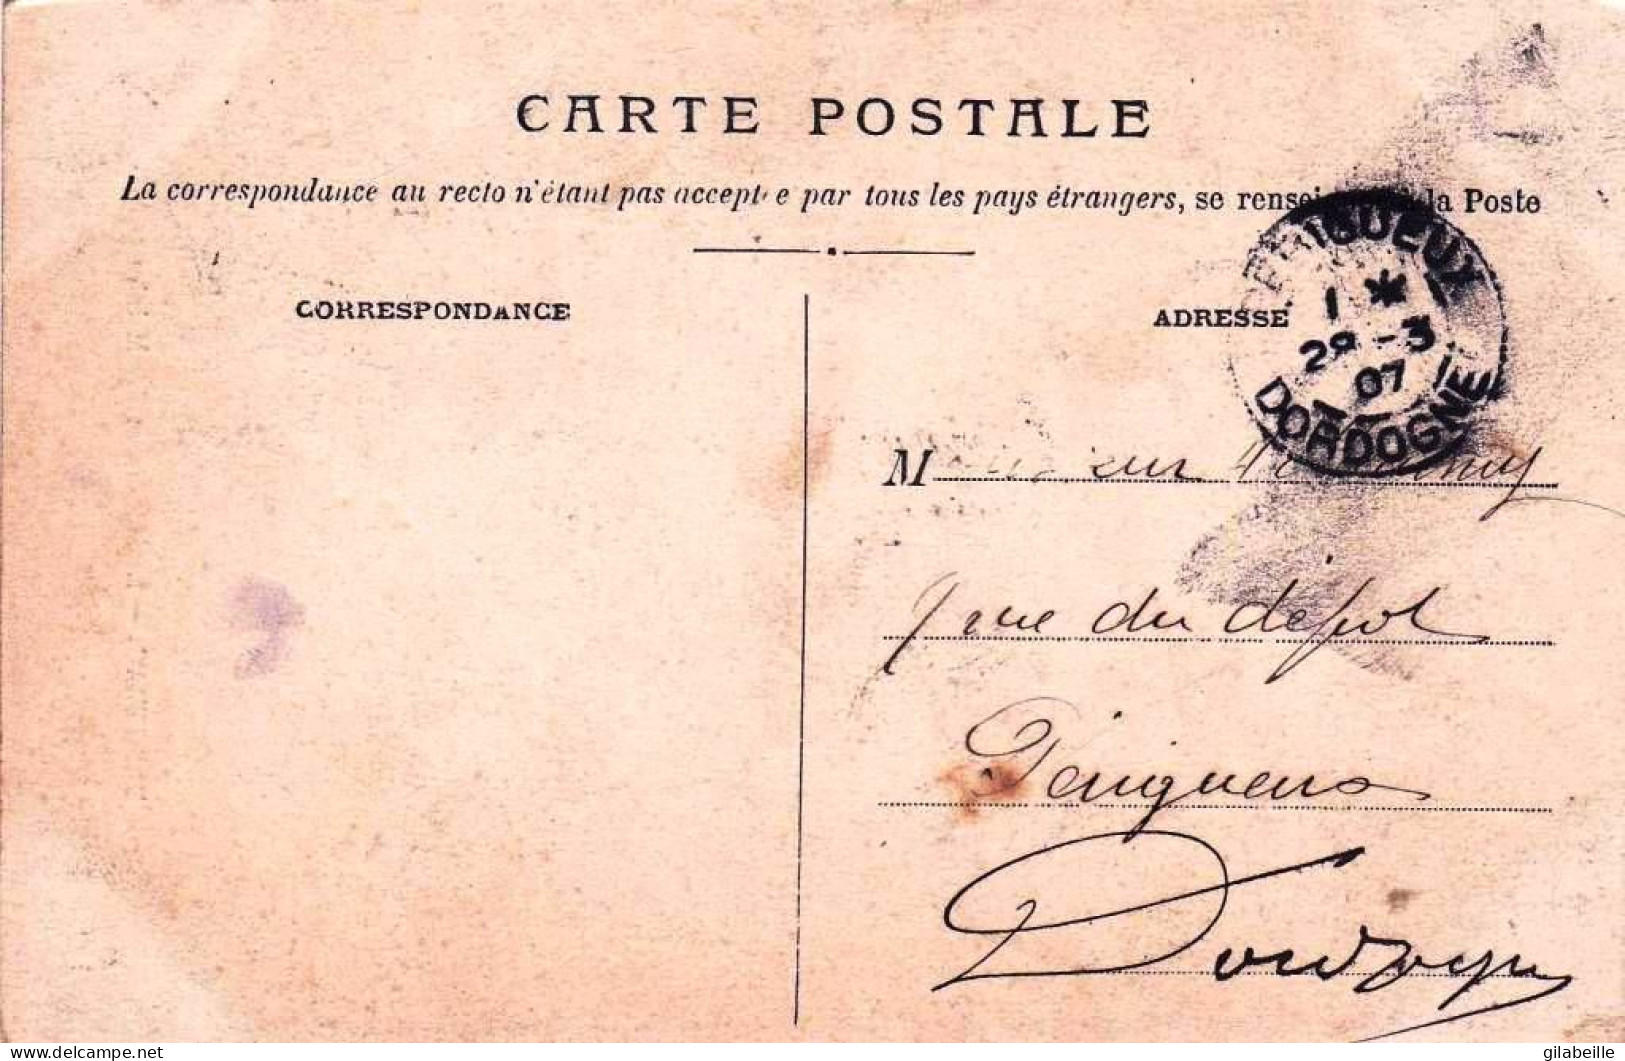 CARTE POSTALE
La correspondance au recto n'étant pas accepte par tous les pays étrangers, se la Poste
CORRESPONDANCE
ADRESSE
PERIGUEUX
1 *
29 -3
07
DORDOGNE
M
rue du dépôt
Périgueux
Dordogne
delcampe.net
gilabeille